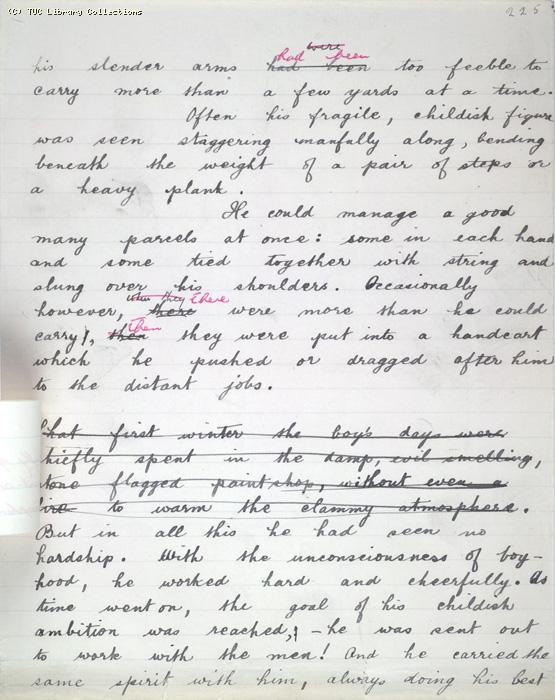 (C) TUC Library Collections
226
were
had been
his slender arms had been too feeble to
carry more than a few yards at a time.
Often his fragile, childish figure
was seen staggering manfully along, bending
beneath the weight of a pair of steps or
a heavy plank.
He could manage a good
many parcels at once: some in each hand
and some tied together with string and
slung over his shoulders. Occasionally
when they there
however, there were more than he could
then
carry, then they were put into a handcart
which he pushed or dragged after him
to the distant jobs.
That first winter the boy's days were
chiefly spent in the damp, evil smelling,
stone flagged paint shop, without even a
fire to warm the clammy atmosphere.
But in all this he had seen no
hardship. With the unconsciousness of boy-
hood, he worked hard and cheerfully. As
time went on, the goal of his childish
ambition was reached, - he was sent out
to work with the men! And he carried the
same spirit with him, always doing his best